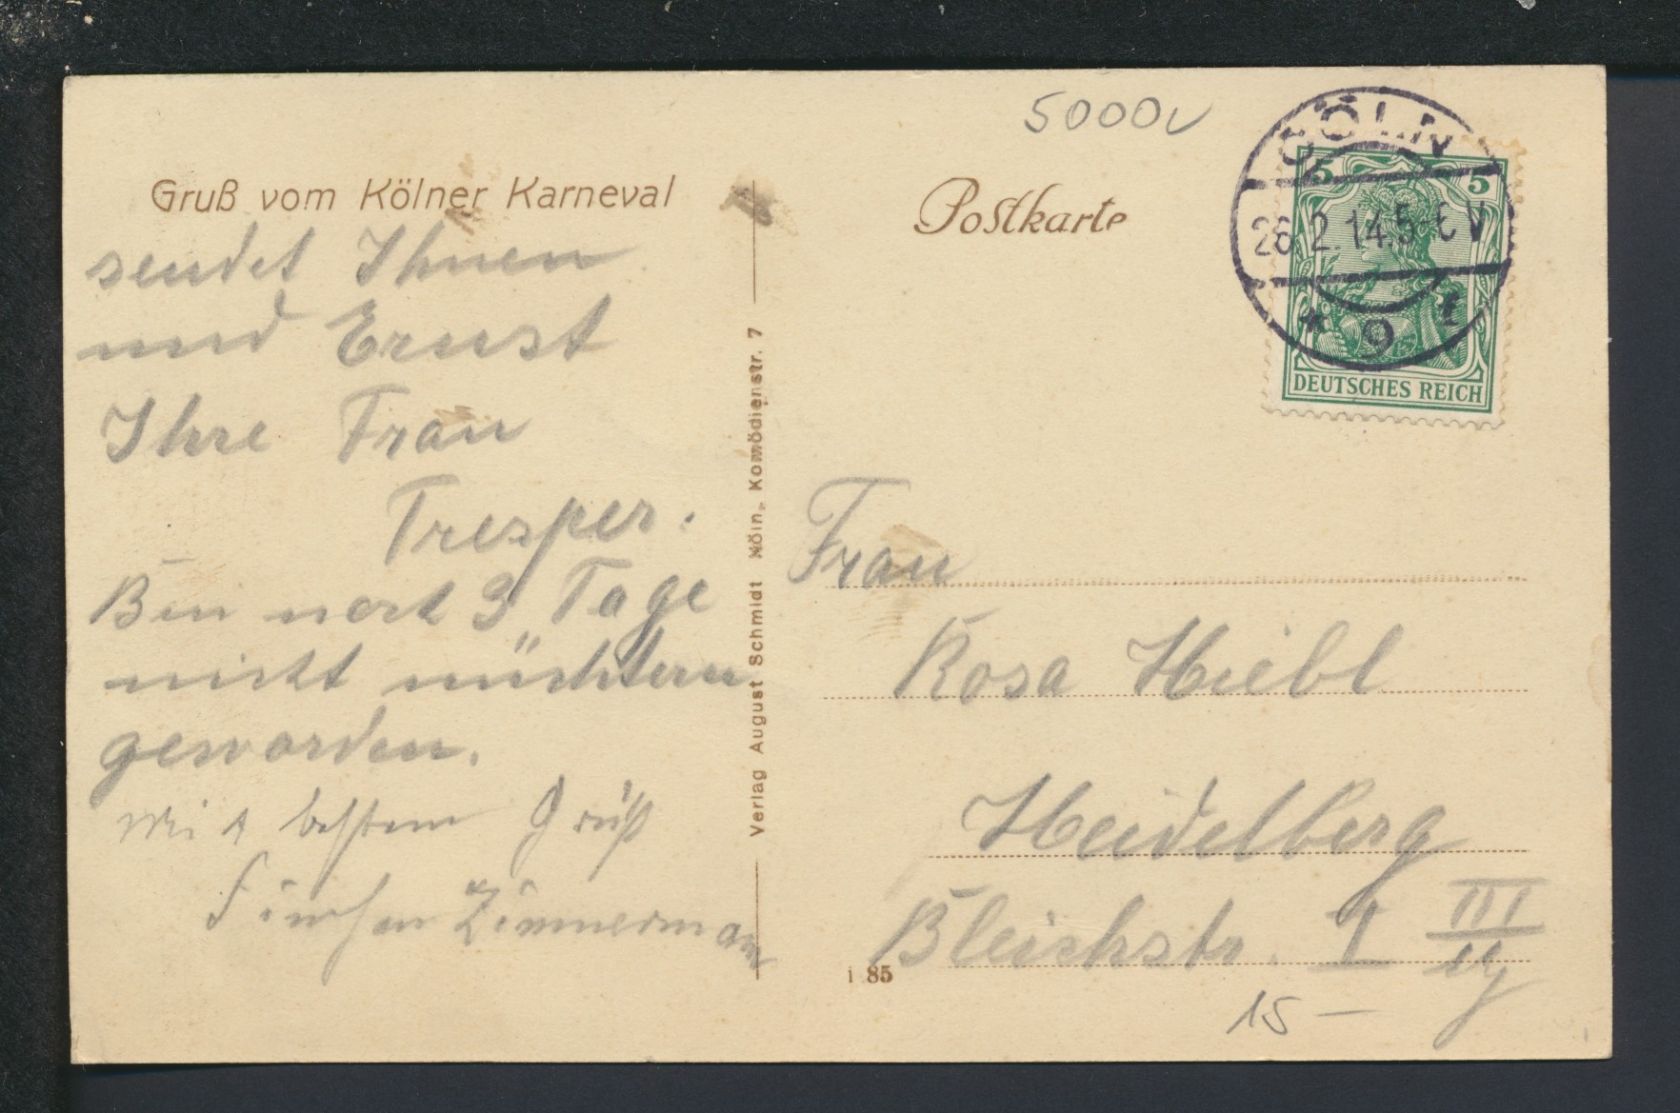 5000
Gruß vom Kölner Karneval
sendet Ihnen
und Ernst
Ihre Frau
Tresper.
Bin noch 3 Tage
nicht nüchtern
geworden.
Mit bestem Gruß
Zimmermann
Verlag August Schmidt Köln, Komödienstr. 7
Postkarte
CÖLN
26.2.14.5-6 V
* 9
5 5
DEUTSCHES REICH
Frau
Rosa Hiebl
Heidelberg
Bleichstr. 1 III
85
15 –